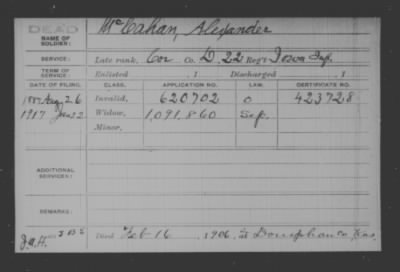 DEAD
McCahan, Alexander
NAME OF SOLDIER:
SERVICE: Late rank, Cor Co. D, 22 Reg't Iowa Inf.
TERM OF SERVICE: Enlisted , 1 Discharged , 1
DATE OF FILING. CLASS. APPLICATION NO. LAW. CERTIFICATE NO.
1887 Aug 26 Invalid, 620702 423728
1917 Widow, 1,091,860
Minor,
ADDITIONAL SERVICES:
REMARKS:
Died Feb 16, 1906, at Doniphan Co Kas.